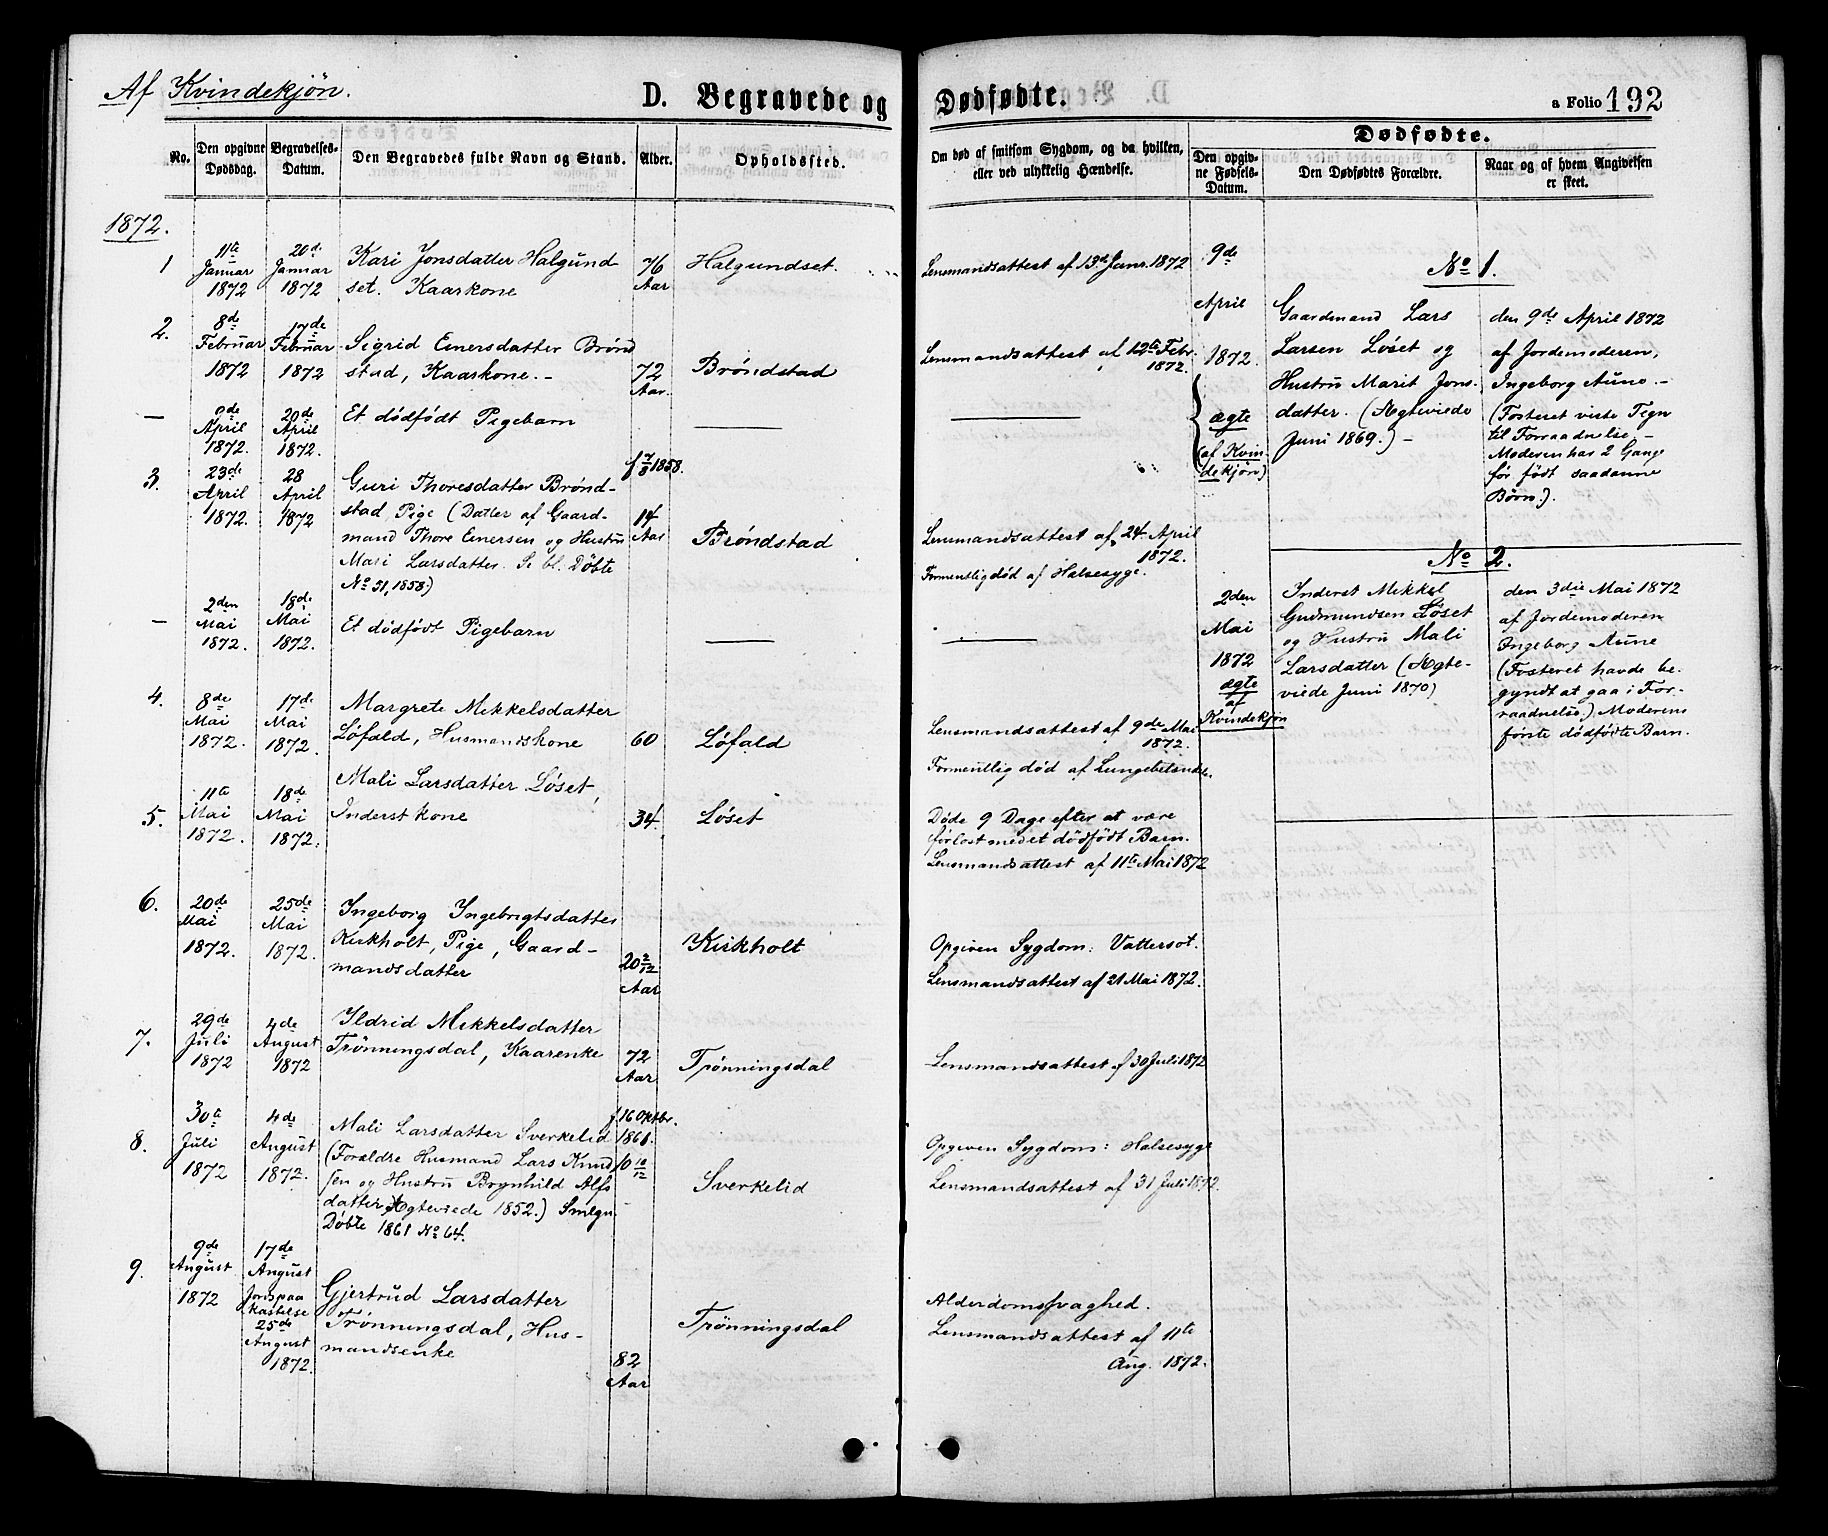 Af Kvindekjøn.
D. Begravede og Dødfødte.
a Folio 192
No.
Den opgivne Dødsdag.
Begravelses-Datum.
Den Begravedes fulde Navn og Stand.
Alder.
Opholdssted.
Om død af smitsom Sygdom, og da hvilken,
eller ved ulykkelig Hændelse.
Dødfødte.
Den opgivne Fødsels-Datum.
Den Dødfødtes Forældre.
Naar og af hvem Angivelsen
er skeet.
1872.
1
11te Januar 1872
20de Januar 1872
Kari Jonsdatter Halgund-
set. Kaarkone
76 Aar
Halgundset.
Lensmandsattest af 13de Janr. 1872
2.
8de Februar 1872
17de Februar 1872
Sigrid Einersdatter Brønd
stad, Kaarkone. –
72 Aar.
Brøndstad
Lensmandsattest af 12te Febr.
1872.
—
9de April 1872.
20de April 1872.
Et dödfödt Pigebarn
—
—
3.
23de April 1872.
28 April 1872
Guri Thoresdatter Brønd-
stad, Pige (Datter af Gaard-
mand Thore Einersen og Hustru
Mari Larsdatter. Se bl. Døbte
No 31, 1858)
f 7/8 1858.
14 Aar
Brøndstad
Lensmandsattest af 24 April
1872.
Formentlig død af Halsesyge.
—
2den Mai 1872.
18de Mai 1872.
Et dödfödt Pigebarn
—
—
4.
8de Mai 1872.
17de Mai 1872.
Margrete Mikkelsdatter
Löfald, Husmandskone
60
Löfald
Lensmandsattest af 9de Mai
1872.
Formentlig død af
5.
11te Mai 1872.
18de Mai 1872.
Mali Larsdatter Løset,
Inderstkone
34.
Løset
Døde 9 Dage efter at være
forløst med et dödfödt Barn.
Lensmandsattest af 11te Mai 1872
6.
20de Mai 1872.
25de Mai 1872.
Ingeborg Ingebrigtsdatter
Kirkholt, Pige, Gaard-
mandsdatter
20 2/12 Aar
Kirkholt
Opgiven Sygdom: Vattersot.
Lensmandsattest af 21 Mai 1872.
7.
29de Juli 1872
4de August 1872
Ildrid Mikkelsdatter
Trønningsdal, Kaarenke
72 Aar
Trønningsdal
Lensmandsattest af 30 Juli 1872
8.
30te Juli 1872
4de August 1872.
Mali Larsdatter Sverkelid
(Forældre Husmand Lars Knud
sen og Hustru Brynhild Alfs
datter, Ægteviede 1852.) Smlgn.
Døbte 1861 No 64.
f 16 Oktbr. 1861.
10 10/12
Sverkelid
Opgiven Sygdom: Halsesyge
Lensmandsattest af 31 Juli 1872.
9.
9de August 1872
17de August
Jordspaa
kastelse
25de August 1872.
Gjertrud Larsdatter
Trønningsdal, Hus-
mandsenke
82 Aar
Trønningsdal
Alderdomssvaghed.
Lensmandsattest af 11te
Aug. 1872.
No 1.
9de
April
1872.
ægte
(af Kvin
dekjøn)
Gaardmand Lars
Larsen Løset og
Hustru Marit Jons-
datter. (Ægteviede
Juni 1869.) –
den 9de April 1872
af Jordemoderen,
Ingeborg Aune. –
(Fosteret viste Tegn
til Forraadnelse, –
Moderen har 2 Gange
før födt saadanne
Børn.).
No 2.
2den
Mai
1872
ægte
af
Kvindekjøn
Inderst Mikkel
Gudmundsen Løset
og Hustru Mali
Larsdatter (Ægte-
viede Juni 1870)
den 3die Mai 1872
af Jordemoderen
Ingeborg Aune
(Fosteret havde be-
gyndt at gaa i For-
raadnelse.) Moderens
første dödfödte Barn.